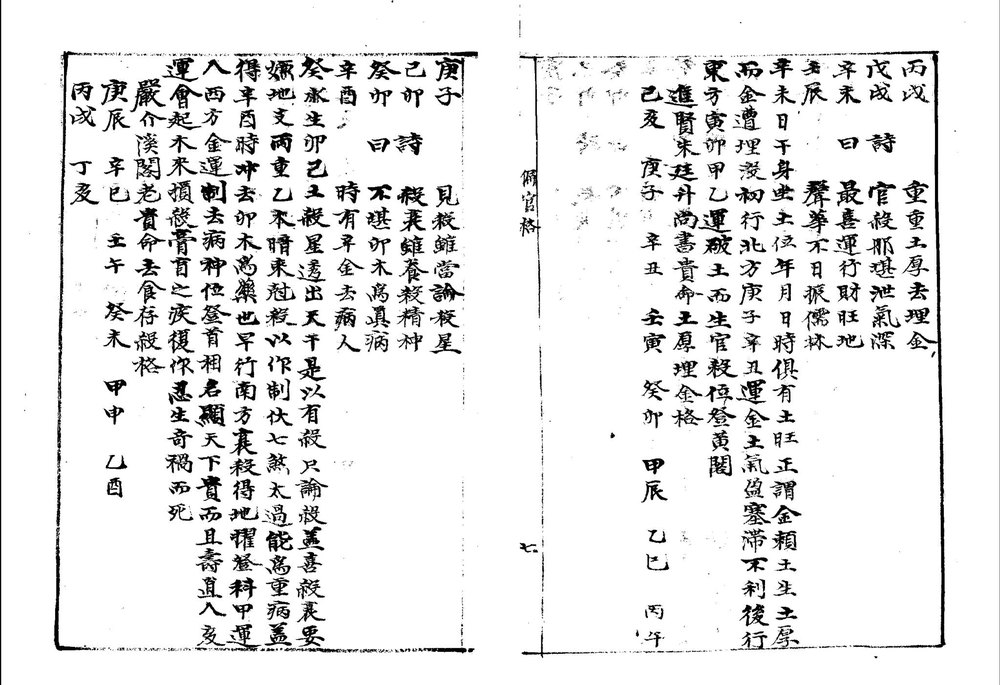 丙戌 重重土厚去埋金
戊戌 詩 官殺那堪泄氣深
辛未 曰 最喜運行財旺地
壬辰 聲華不日振儒林
辛未日干身坐土位年月日時俱有土旺正謂金賴土生土厚
而金遭埋沒初行北方庚子辛丑運金土氣盈塞滯不利後行
東方寅卯甲乙運破土而生官殺位登黃閣
進賢朱廷升尚書貴命土厚埋金格
己亥 庚子 辛丑 壬寅 癸卯 甲辰 乙巳 丙午
偏官格
七
庚子 見殺雖當論殺星
己卯 詩 殺衰雖養殺精神
癸卯 曰 不堪卯木為真病
辛酉 時有辛金去病人
癸水生卯己土殺星透出天干是以有殺只論殺盖喜殺衰要
嫌地支兩重乙木暗來尅殺以作制伏七煞太過能為重病盖
得辛酉時冲去卯木為藥也早行南方衰殺得地擢登科甲運
入西方金運制去病神位登首相名顯天下貴而且壽直入亥
運會起木來損殺膏肓之疾復作忍生奇禍而死
嚴介溪閣老貴命去食存殺格
庚辰 辛巳 壬午 癸未 甲申 乙酉
丙戌 丁亥